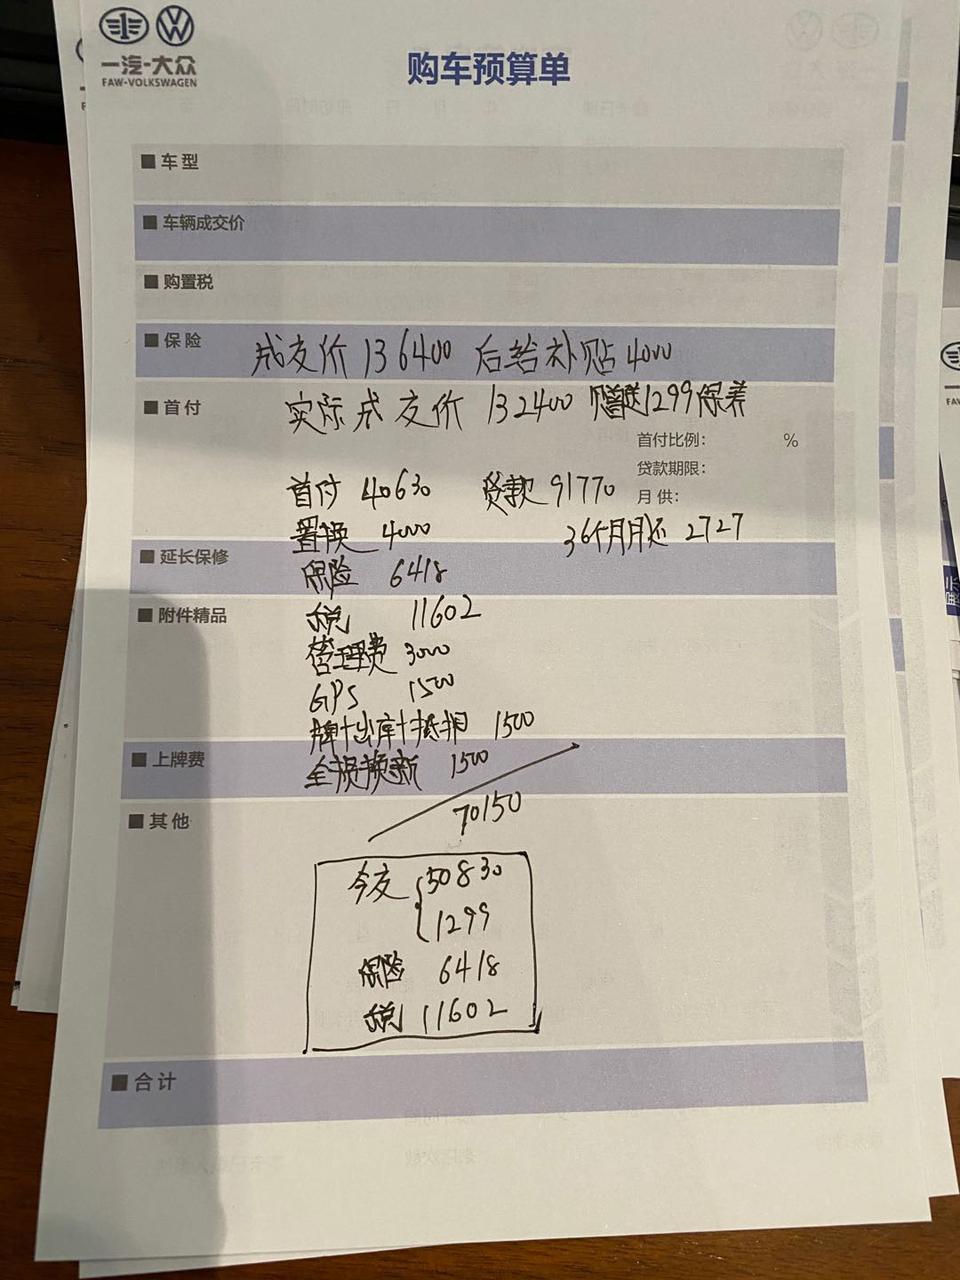 一汽-大众
FAW-VOLKSWAGEN
购车预算单
■ 车型
■ 车辆成交价
■ 购置税
■ 保险
成交价 136400 后给补贴 4000
■ 首付
实际成交价 132400 赠送1299保养
首付比例: %
贷款期限:
月供:
首付 40630 贷款 91770
置换 4000 36个月月还 2727
■ 延长保修
保险 6418
■ 附件精品
税 11602
管理费 3000
GPS 1500
牌+出库+抵押 1500
■ 上牌费
全损换新 1500
70150
■ 其他
今交 50830
1299
保险 6418
税 11602
■ 合计